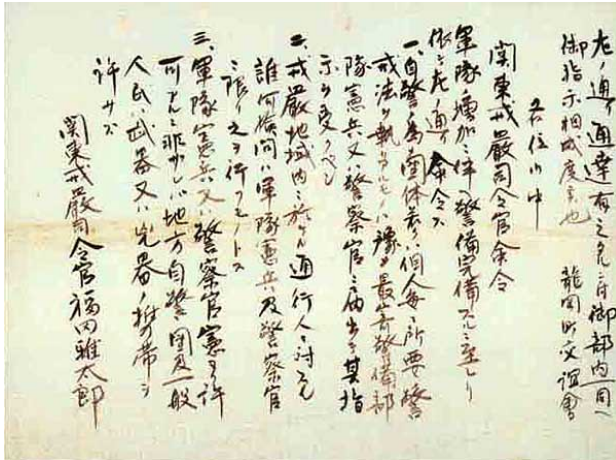 左ノ通通達有之候ニ付御部内一同ヘ
御指示相成度候也　龍岡町交誼會
各位御中
関東戒嚴司令官命令
軍隊ノ増加ニ伴ヒ警備完備スルニ至レリ
依テ左ノ通リ命令ス
一、自警ノ為団体若クハ個人毎ニ所要ノ警
戒法ヲ執リタルモノハ豫メ最寄警備部
隊憲兵又ハ警察官ニ届出テ其指
示ヲ受クベシ
二、戒嚴地域内ニ於ケル通行人ニ対スル
誰何検問ハ軍隊憲兵及警察官
ニ限リ之ヲ行フモノトス
三、軍隊憲兵又ハ警察官憲ヨリ許
可アルニ非ザレバ地方自警団及一般
人民ハ武器又ハ兇器ノ携帯ヲ
許サズ
関東戒嚴司令官福田雅太郎